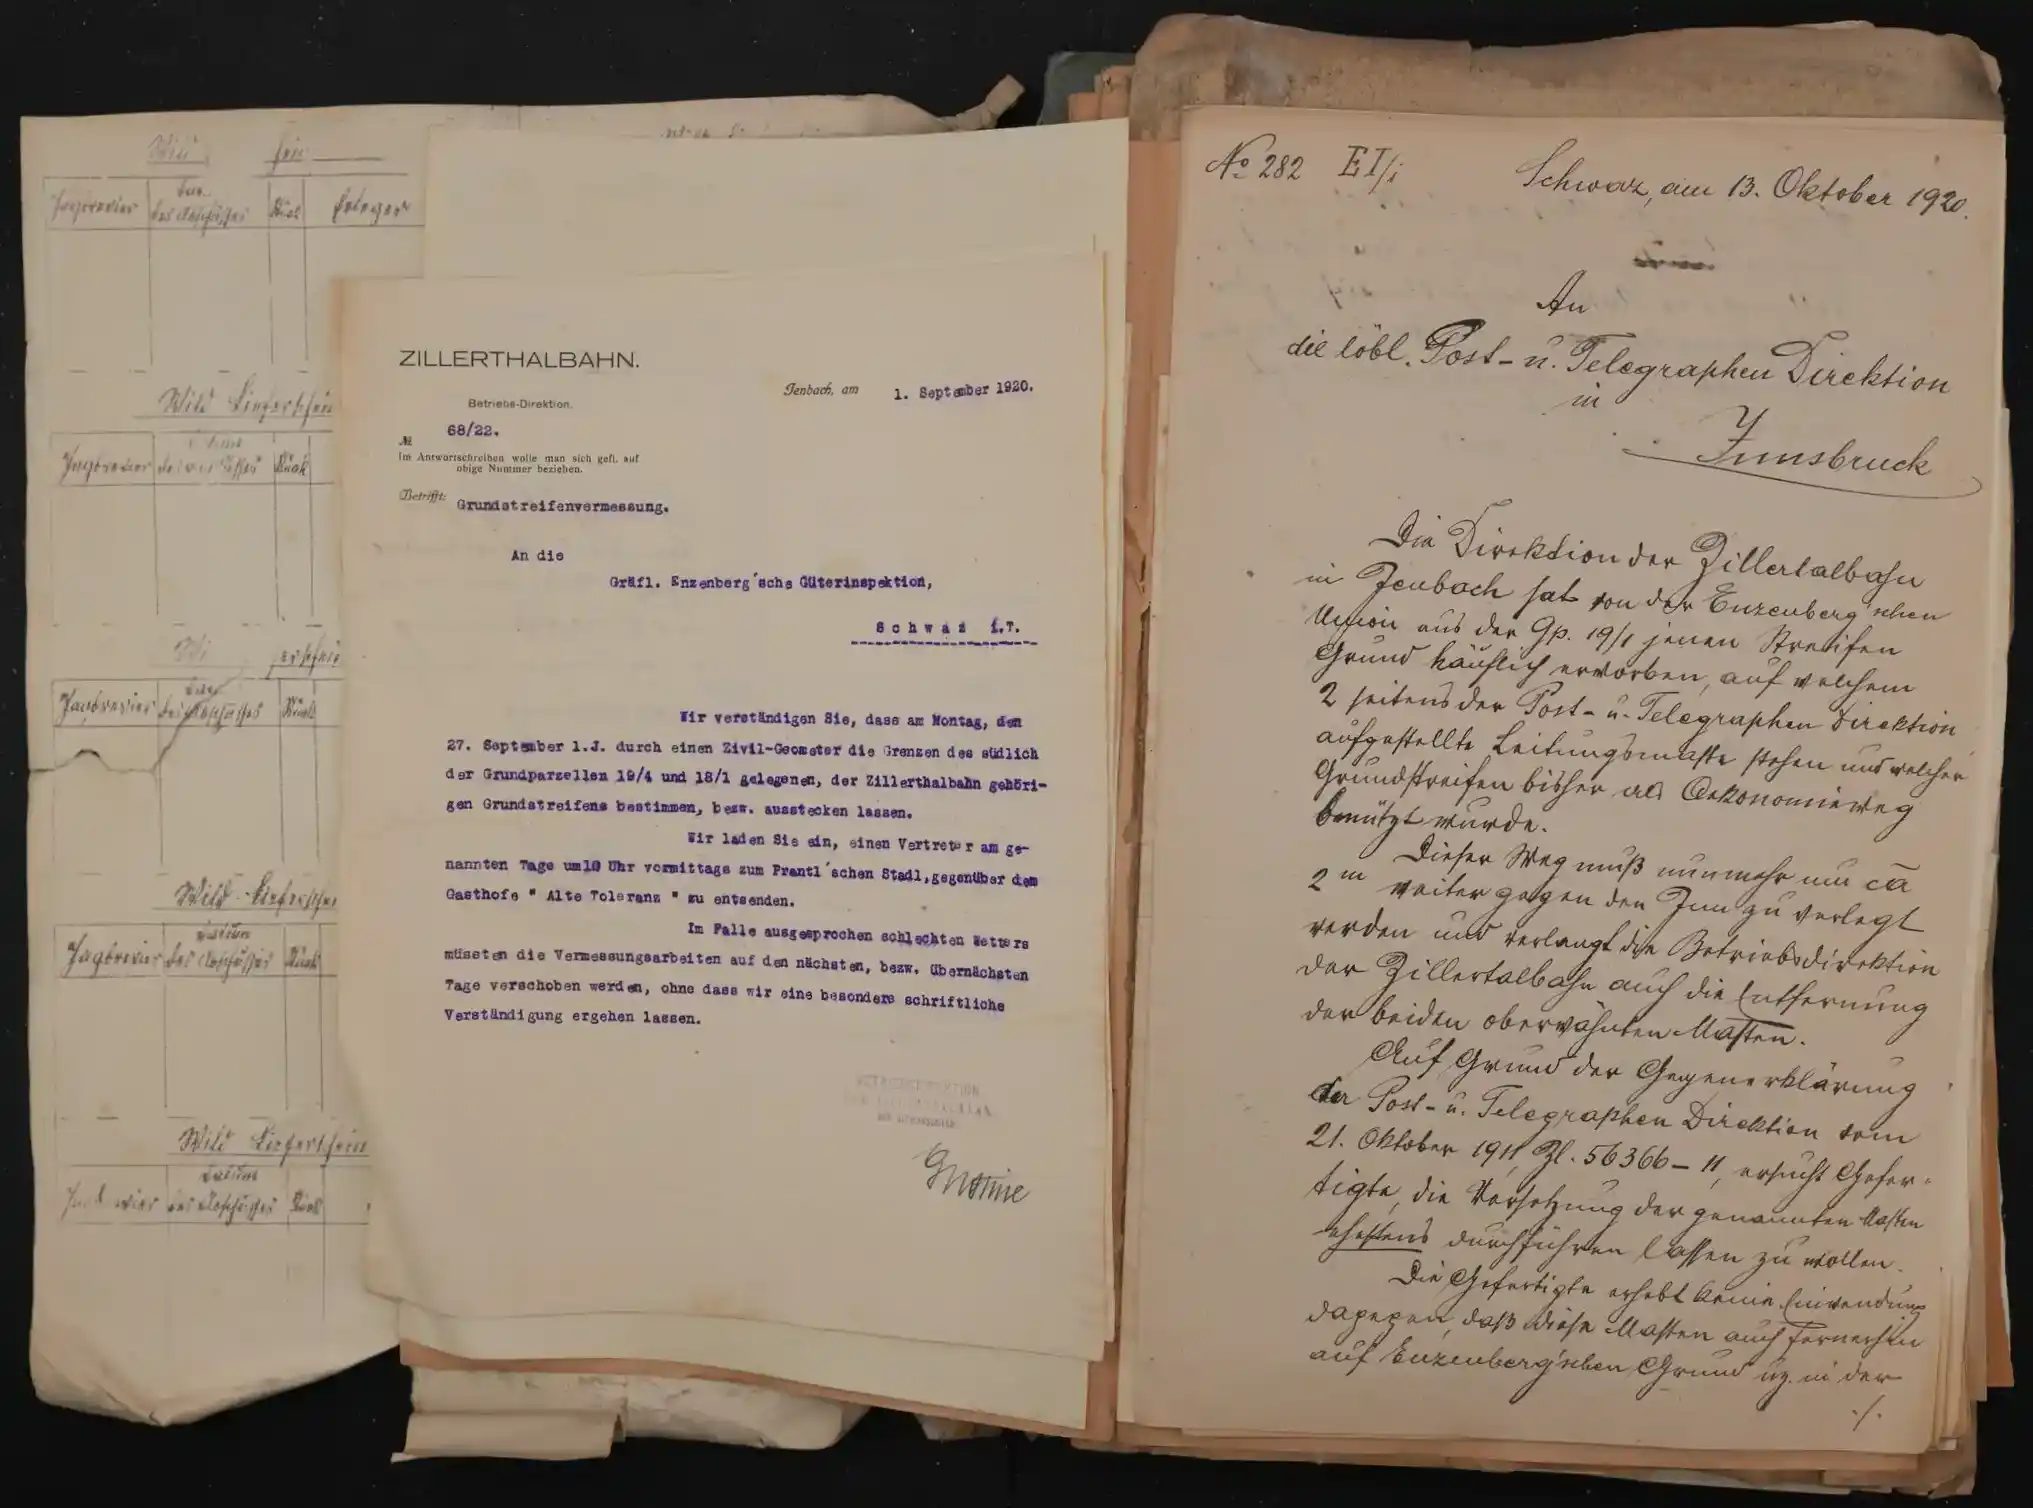 Wild
Jagdrevier
des Abschusses
Stück
Wild Lieferschein
Jagdrevier
Stück
Jagdrevier
des Abschusses
Stück
Wild-Lieferschein
Jagdrevier
Datum
des Abschusses
Stück
Wild Lieferschein
Datum
des Abschusses
Stück
ZILLERTHALBAHN.
Jenbach, am 1. September 1920.
Betriebs-Direktion.
№ 68/22.
Im Antwortschreiben wolle man sich gefl. auf
obige Nummer beziehen.
Betrifft: Grundstreifenvermessung.
An die
Gräfl. Enzenberg'sche Güterinspektion,
Schwaz i.T.
Wir verständigen Sie, dass am Montag, den
27. September l.J. durch einen Zivil-Geometer die Grenzen des südlich
der Grundparzellen 19/4 und 18/1 gelegenen, der Zillerthalbahn gehöri-
gen Grundstreifens bestimmen, bezw. ausstecken lassen.
Wir laden Sie ein, einen Vertreter am ge-
nannten Tage um 10 Uhr vormittags zum Prantl'schen Stadl, gegenüber dem
Gasthofe " Alte Toleranz " zu entsenden.
Im Falle ausgesprochen schlechten Wetters
müssten die Vermessungsarbeiten auf den nächsten, bezw. übernächsten
Tage verschoben werden, ohne dass wir eine besondere schriftliche
Verständigung ergehen lassen.
No 282 EI/i
Schwaz, am 13. Oktober 1920.
An
die löbl. Post- u. Telegraphen Direktion
in
Innsbruck
Die Direktion der Zillertalbahn
in Jenbach hat von der Enzenberg'schen
Union aus der Gp. 19/1 jenen Streifen
Grund käuflich erworben, auf welchem
2 seitens der Post- u. Telegraphen Direktion
aufgestellte Leitungsmaste stehen und welcher
Grundstreifen bisher als Oekonomieweg
benützt wurde.
Dieser Weg muß nunmehr um ca
2 m weiter gegen den Inn zu verlegt
werden und verlangt die Betriebsdirektion
der Zillertalbahn auch die Entfernung
der beiden oberwähnten Masten.
Auf Grund der Gegenerklärung
der Post- u. Telegraphen Direktion vom
21. Oktober 1911, Zl. 56366-11, ersucht Gefer-
tigte, die Versetzung der genannten Masten
ehestens durchführen lassen zu wollen.
Die Gefertigte erhebt keine Einwendung
dagegen, daß diese Masten auch fernerhin
auf Enzenberg'schen Grund uz. in der
./.